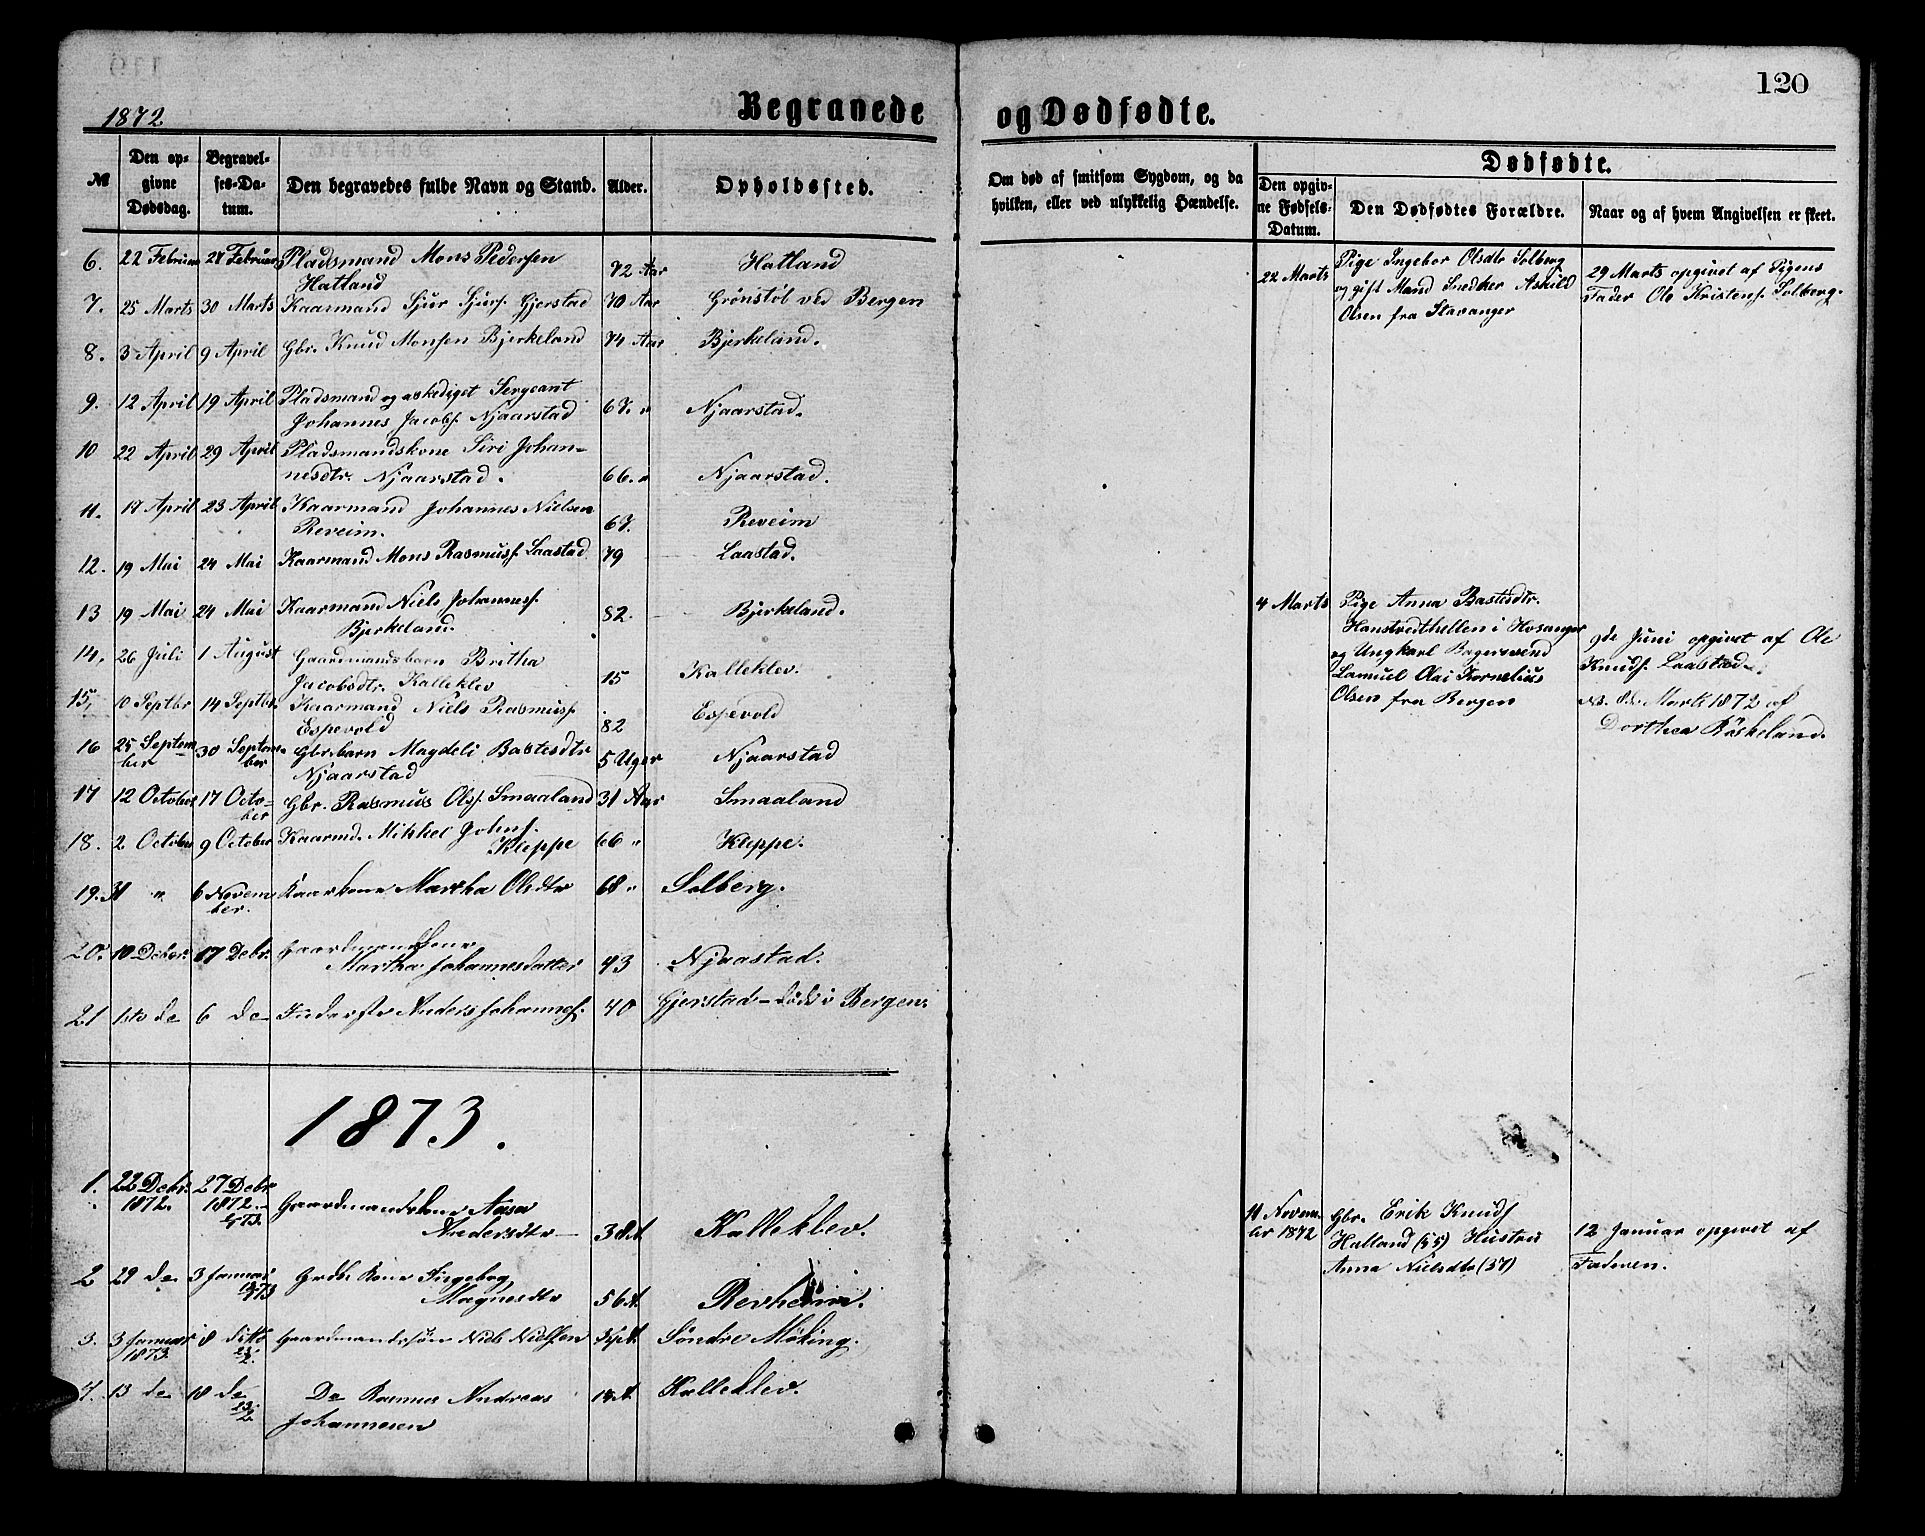 120
1872
Begravede og Dødfødte.
№ | Den opgivne Dødsdag. | Begravelses-Datum. | Den begravedes fulde Navn og Stand. | Alder. | Opholdssted. | Om død af smitsom Sygdom, og da hvilken, eller ved ulykkelig Hændelse. | Dødfødte. | Den opgivne Fødsels-Datum. | Den Dødfødtes Forældre. | Naar og af hvem Angivelsen er skeet.
6. 22 Februar 27 Februar Pladsmand Mons Pedersen 72 Aar Hatland
Hatland
7. 25 Marts 30 Marts Kaarmand Sjur Sjurs. Gjerstad 70 Aar Grönstöl ved Bergen
8. 3 April 9 April Gbr. Knud Monsen Bjerkeland 74 Aar Bjerkeland.
9. 12 April 19 April Pladsmand og afskediget Sergeant
Johannes Jacobs. Njaarstad 67. " Njaarstad.
10 22 April 29 April Pladsmandskone Siri Johan-
nesdtr. Njaarstad. 66. " Njaarstad.
11. 17 April 23 April Kaarmand Johannes Nielsen
Reveim. 67. Reveim
12. 19 Mai 24 Mai Kaarmand Mons Rasmuss. Laastad 79 Laastad.
13 19 Mai 24 Mai Kaarmand Niels Johanness.
Bjerkeland. 82. Bjerkeland.
14. 26 Juli 1 August Gaardmandsbarn Britha
Jacobsdtr. Kalleklev 15 Kalleklev.
15, 10 Septbr 14 Septbr. Kaarmand Niels Rasmuss.
Espevold 82 Espevold
16 25 September 30 September Gbr. barn Magdeli Bastesdtr
Njaarstad 5 Uger Njaarstad
17 12 October 17 October Gbr. Rasmus Ols. Smaaland 31 Aar Smaaland
18. 2 October 9 October Kaarmd. Mikkel Johns.
Kleppe 66 " Kleppe.
19. 31 " 6 November Kaarkone Martha Olsdtr 68 " Solberg.
20. 10 Decbr. 17 Debr. Gaardmandskone
Martha Johannesdatter 43 Njaastad.
21 1ste de 6 de Inderste Anders Johannes. 40 Gjerstad - døde i Bergen.
1873.
1. 22 Debr. 1872. 27 Debr 1872. Gaardmandskone Aasa
Andersdtr 38 A Kalleklev.
2 29 de 3 Januar 1873 Grdb Kone Ingebog
Magnesdtr 56 A. Revheim.
3. 3 Januar 1873. 8 ditto Gaardmandssøn Niels Nielsen Søndre Møking.
4. 13 de 18 de De Rasmus Andreas Kalleklev.
Johannesen
22 Marts Pige Ingebor Olsdtr Solberg
og gift Mand Snedker Askild
Olsen fra Stavanger
29 Marts opgivet af Pigens
Fader Ole Kristens. Solberg.
4 Marts Pige Anna Bastesdtr.
Hanstvedthellen i Hosanger
og Ungkarl Bagersvend
Samuel Olai Kornelius
Olsen fra Bergen
9de Juni opgivet af Ole
Knuds. Laastad.
Mark 1872 af
Dorthea Röskeland.
11 November 1872 Gbr. Erik Knuds
Hatland (55) Hustru
Anna Nielsdtr (37)
12 Januar opgivet af
Faderen.